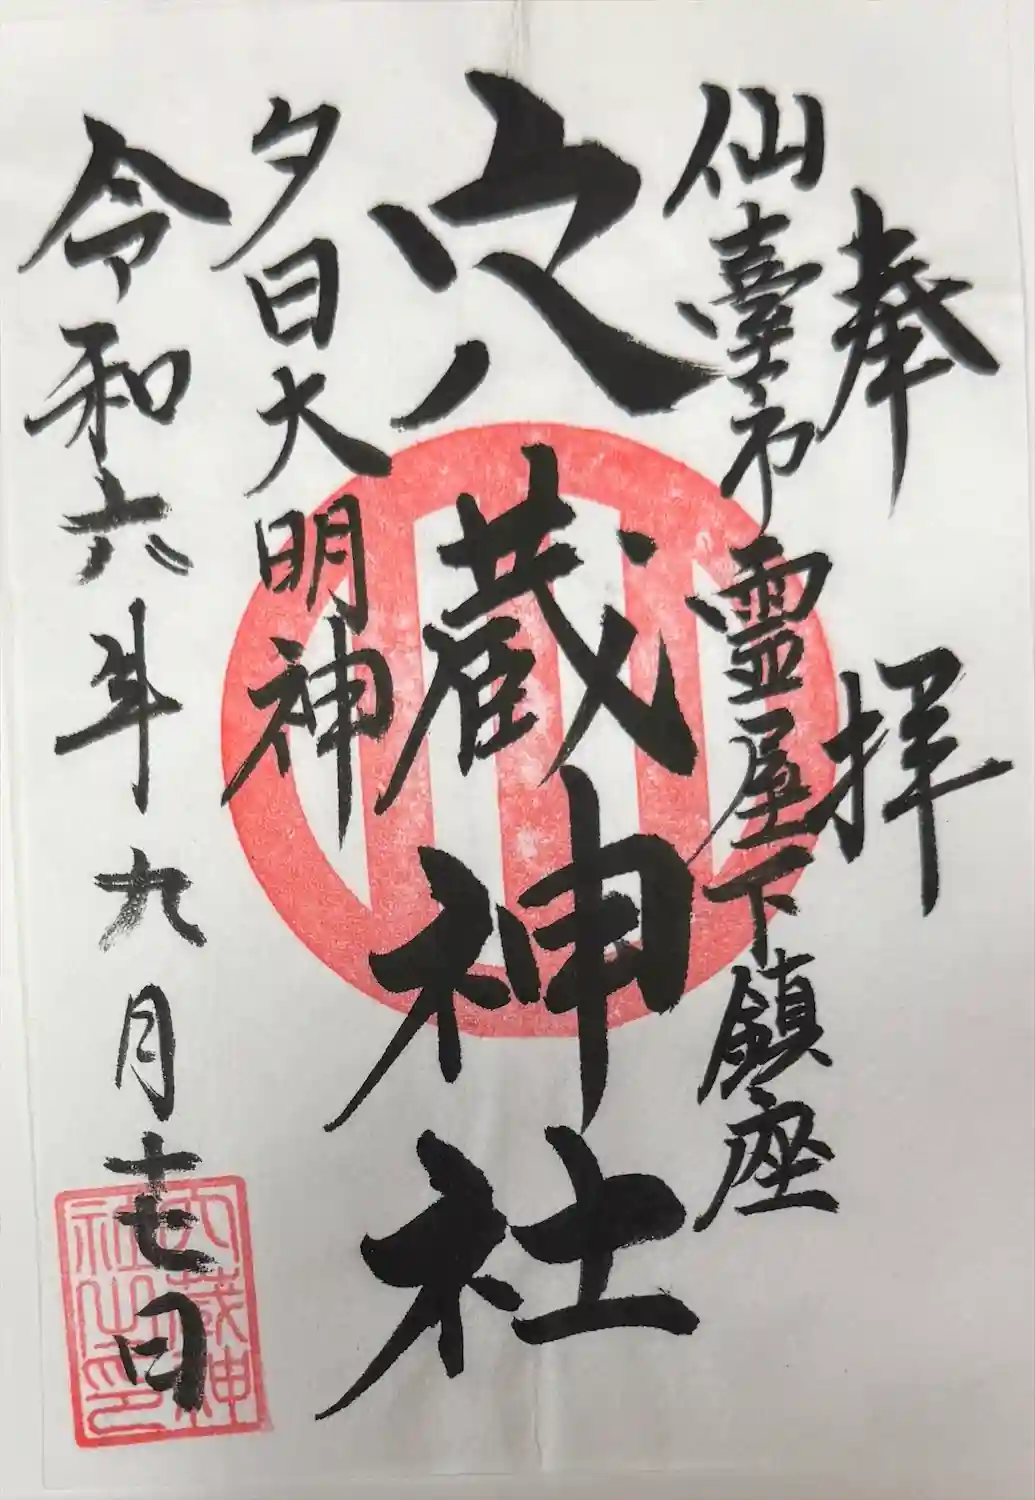 奉拝
仙臺市霊屋下鎮座
穴蔵神社
夕日大明神
令和六年九月十七日
穴蔵神
社之印